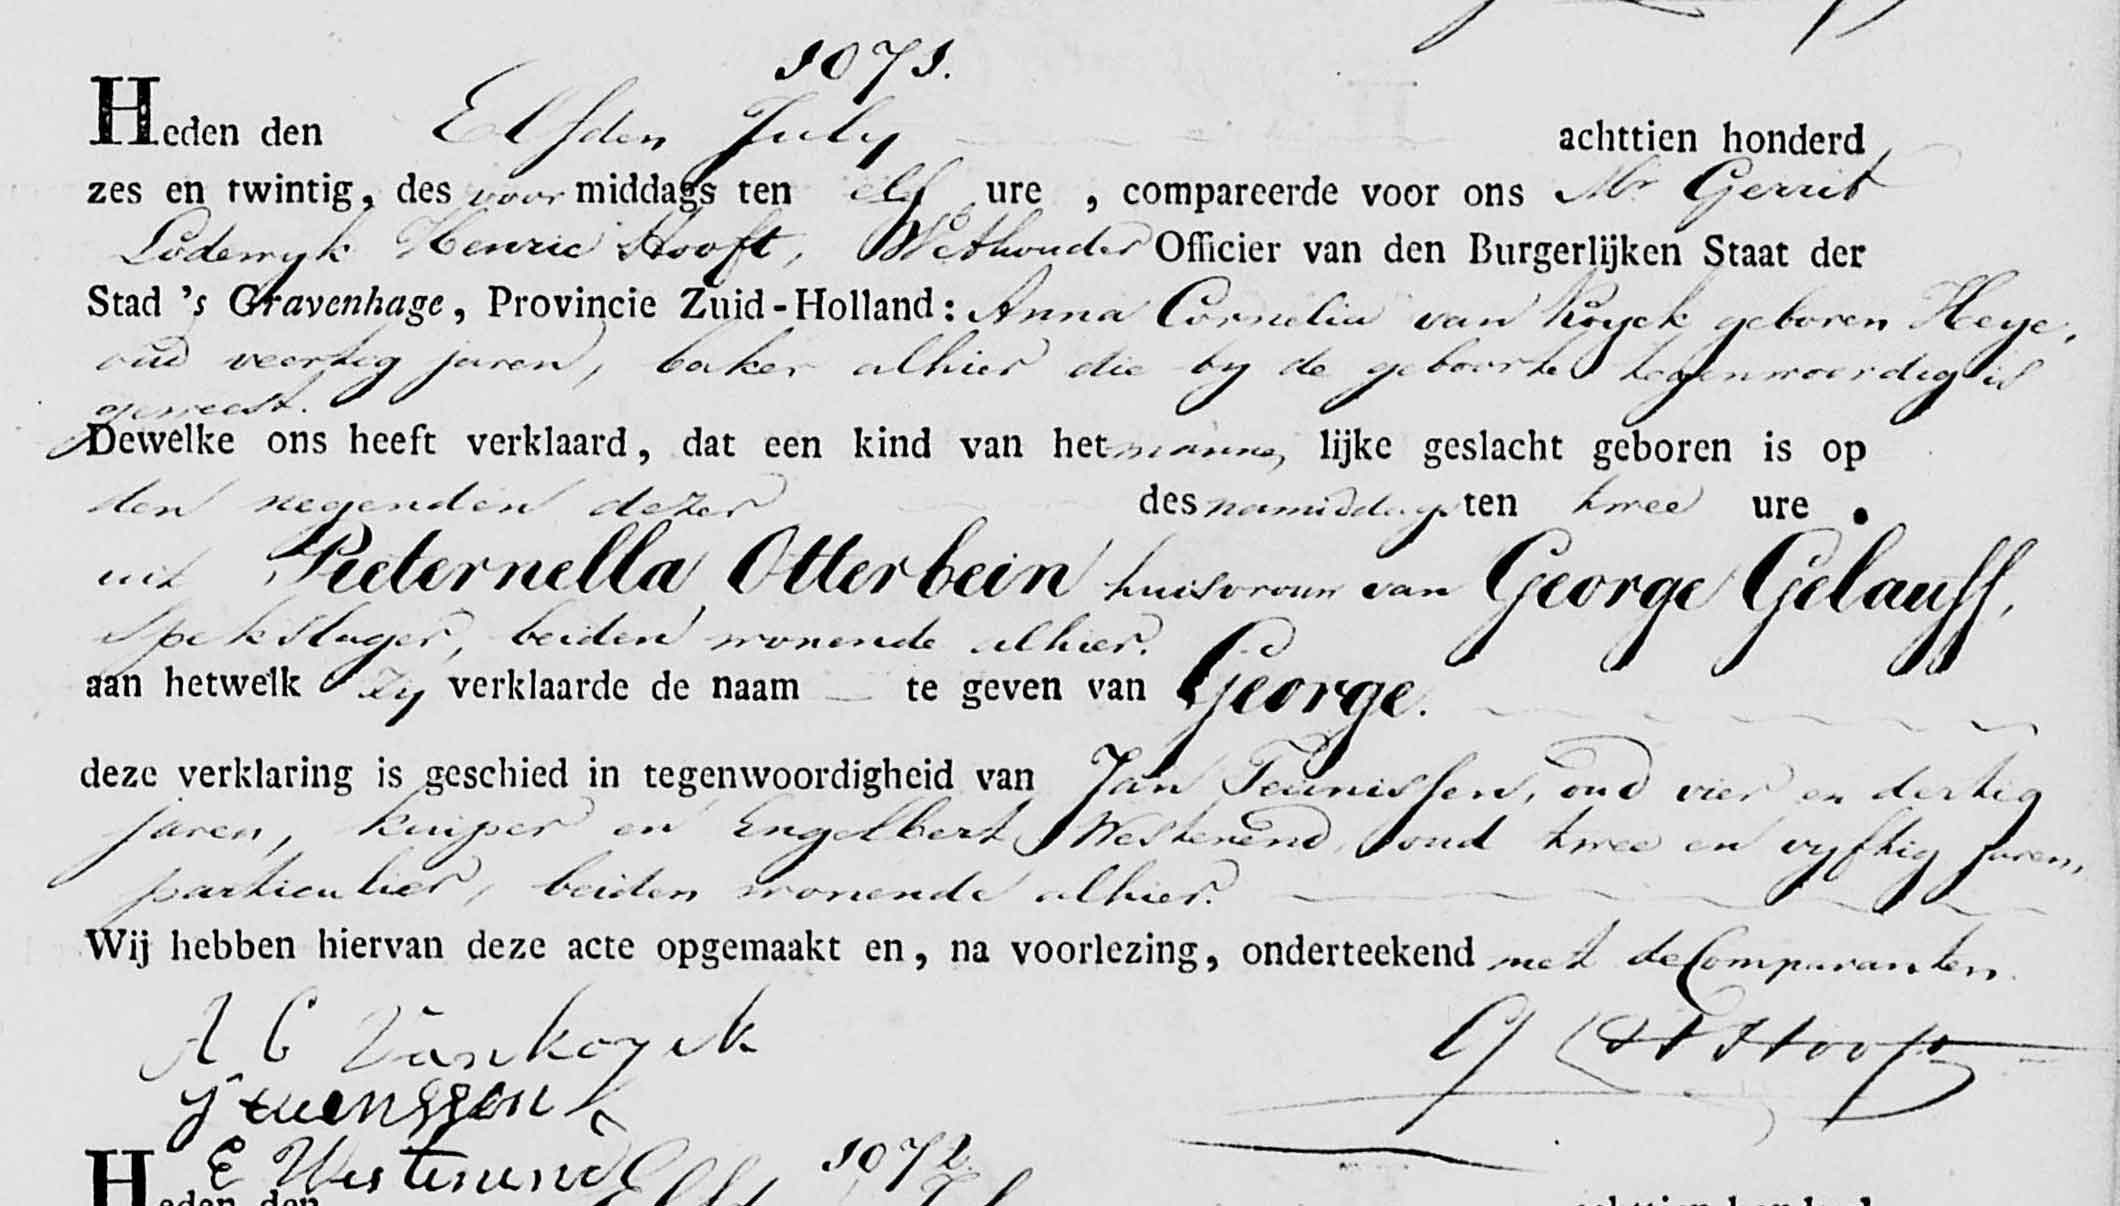 1071.
Heden den Elfden July achttien honderd
zes en twintig, des voor middags ten elf ure , compareerde voor ons Mr Gerrit
Lodewyk Henric Hooft, Wethouder Officier van den Burgerlijken Staat der
Stad 's Gravenhage, Provincie Zuid-Holland: Anna Cornelia van Koyck geboren Heye,
oud veertig jaren, baker alhier die by de geboorte tegenwoordig is
geweest.
Dewelke ons heeft verklaard, dat een kind van het manne, lijke geslacht geboren is op
den negenden dezer des namiddags ten twee ure .
uit Pieternella Otterbein huisvrouw van George Gelauff,
Spekslager, beiden wonende alhier.
aan hetwelk zy verklaarde de naam te geven van George.
deze verklaring is geschied in tegenwoordigheid van Jan Teunissen, oud vier en dertig
jaren, kuiper en Engelbert Westerend, oud twee en vyftig jaren,
particulier, beiden wonende alhier.
Wij hebben hiervan deze acte opgemaakt en, na voorlezing, onderteekend met de Comparanten.
A C Van koyck
G L H Hooft
J teunissen
E Westerend
1072.
Heden den Elfden July achttien honderd